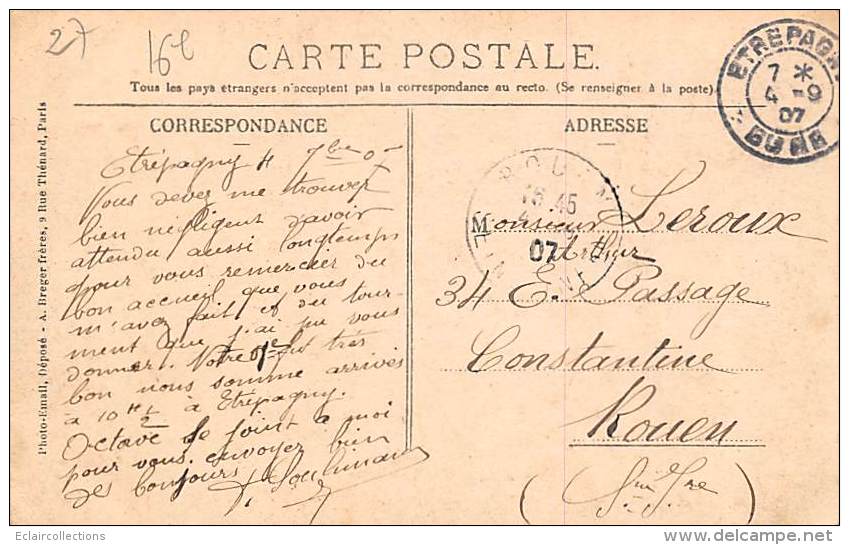 27
16e
CARTE POSTALE.
Tous les pays étrangers n'acceptent pas la correspondance au recto. (Se renseigner à la poste).
CORRESPONDANCE
ADRESSE
ETREPAGNY
7 *
4 -9
07
EURE
Photo-Email, Déposé - A. Breger frères, 9 Rue Thénard, Paris
Etrépagny 4 7bre 07
Vous devez me trouver
bien négligent d'avoir
attendu aussi longtemps
pour vous remercier du
bon accueil que vous
m'avez fait et du tour-
ment que j'ai pu vous
donner. Votre fut très
bon nous somme arrivés
à 10 hes 1/2 à Etrépagny.
Octave se joint à moi
pour vous envoyez bien
des bonjours
ROUEN
16 45
4
07
Monsieur Leroux
Arthur
34 E. Passage
Constantine
Rouen
(Sne Ire)
Eclaircollections
delcampe.net